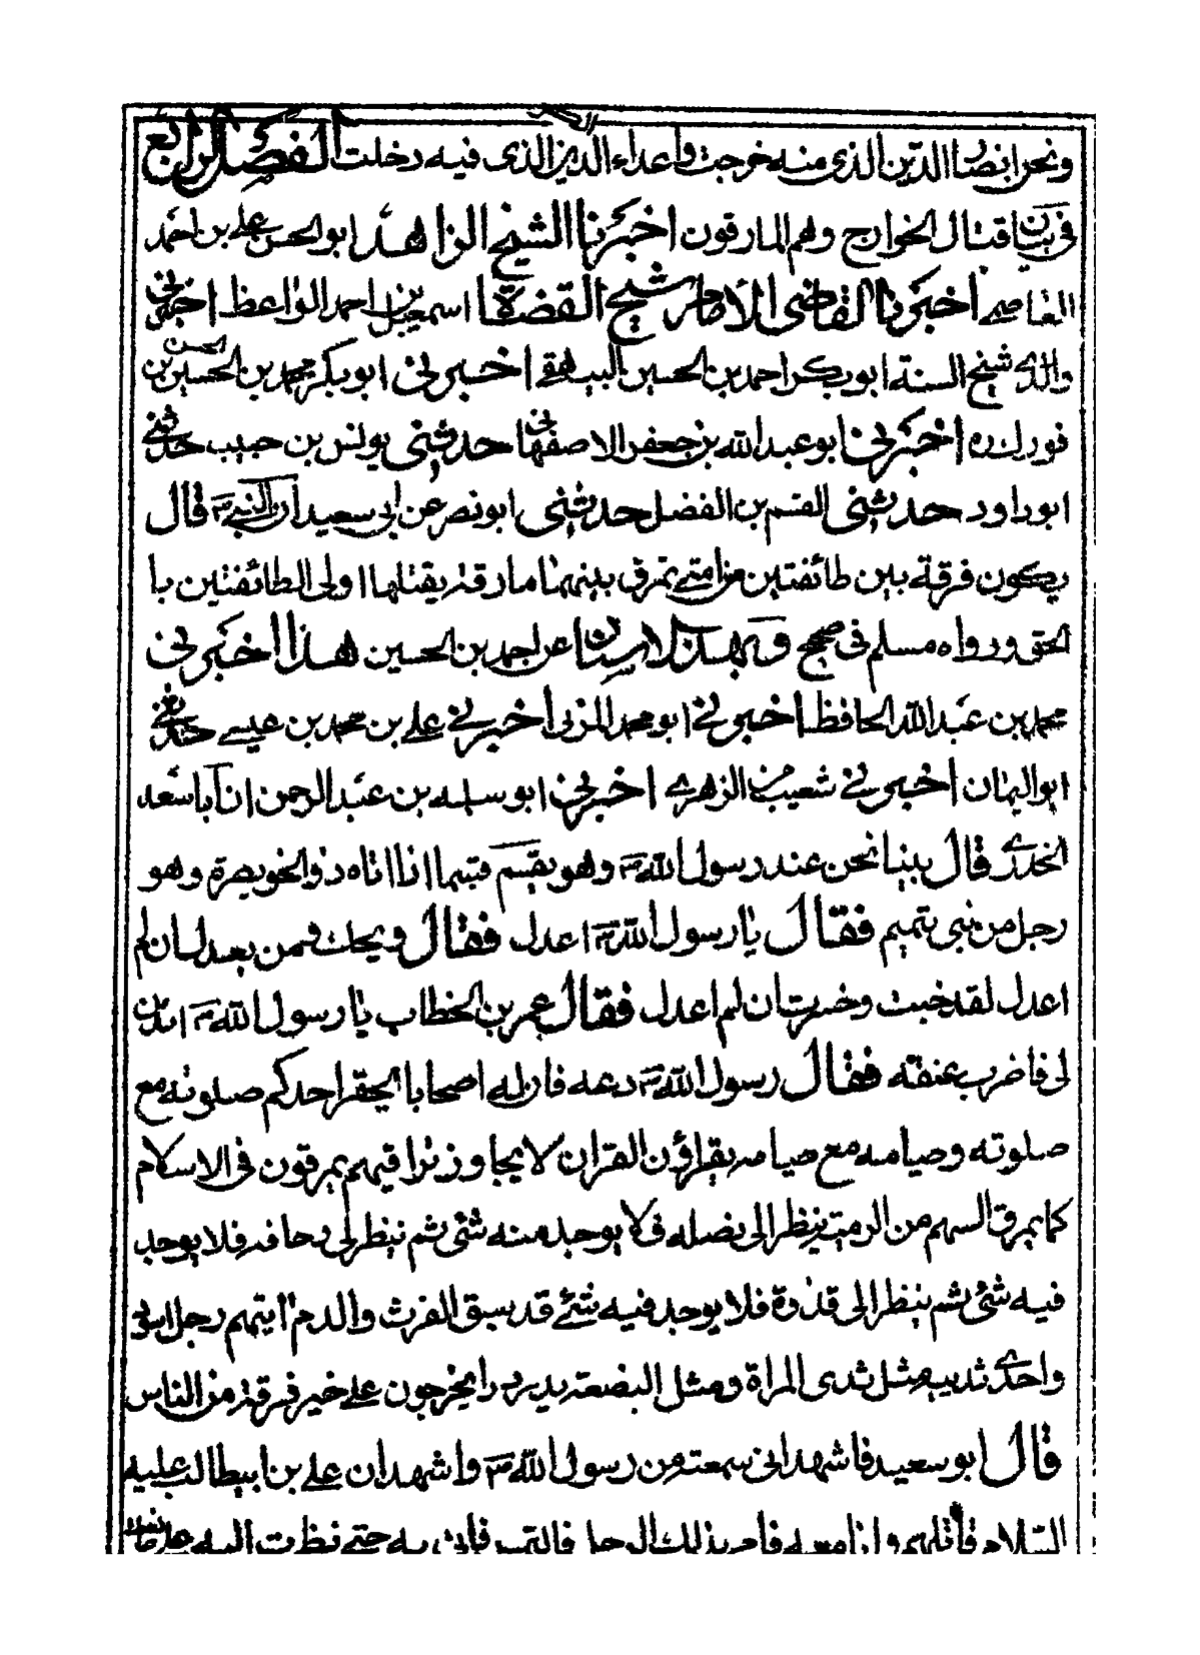 ونحن انصار الدين الذى منه خرجت واعداء الدين الذى فيه دخلت الفصل الرابع
فى بيان قتال الخوارج وهم المارقون اخبرنا الشيخ الزاهد ابو الحسن على بن احمد
العاصمى اخبرنا القاضى الامام شيخ القضاة اسمعيل بن احمد الواعظ اخبرنى
والدى شيخ السنة ابو بكر احمد بن الحسين البيهقى اخبرنى ابو بكر محمد بن الحسين الحسن بن
فورك ره اخبرنى ابو عبد الله بن جعفر الاصفهانى حدثنى يونس بن حبيب حدثنى
ابو داود حدثنى القسم بن الفضل حدثنى ابو نصر عن ابى سعيد ان النبى ص قال
يكون فرقة بين طائفتين من امتى تمرق بينهما مارقة يقتلها اولى الطائفتين با
لحق ورواه مسلم فى صحيح وبهذا الاسناد عن احمد بن الحسين هذا اخبرنى
محمد بن عبد الله الحافظ اخبرنى ابو محمد المزنى اخبرنى على بن محمد بن عيسى حدثنى
ابو اليمان اخبرنى شعيب عن الزهرى اخبرنى ابو سلمه بن عبد الرحمن ان ابا سعد
الخدرى قال بينا نحن عند رسول الله ص وهو يقسم قسما اذا اتاه ذو الخويصرة وهو
رجل من بنى تميم فقال يا رسول الله ص اعدل فقال ويحك فمن يعدل ان لم
اعدل لقد خبت وخسرت ان لم اعدل فقال عمر بن الخطاب يا رسول الله ص ائذن
لى فاضرب عنقه فقال رسول الله ص دعه فان له اصحابا يحقر احدكم صلوته مع
صلوته وصيامه مع صيامه يقراؤن القران لا يجاوز تراقيهم يمرقون فى الاسلام
كما يمرق السهم من الرمية ينظر الى نصله فلا يوجد منه شئ ثم ينظر لى رحافه فلا يوجد
فيه شئ ثم ينظر الى قذذة فلا يوجد فيه شئ قد سبق الفرث والدم ايتهم رجل اسود
واحدى ثدييه مثل ثدى المراة ومثل البضعة يدردرا يخرجون على خير فرقة من الناس
قال ابو سعيد فاشهد انى سمعته من رسول الله ص واشهد ان على بن ابيطالب عليه
السلام قاتلهم وانا معه فامر بذلك الرجل فالتمس فاتى به حتى نظرت اليه على